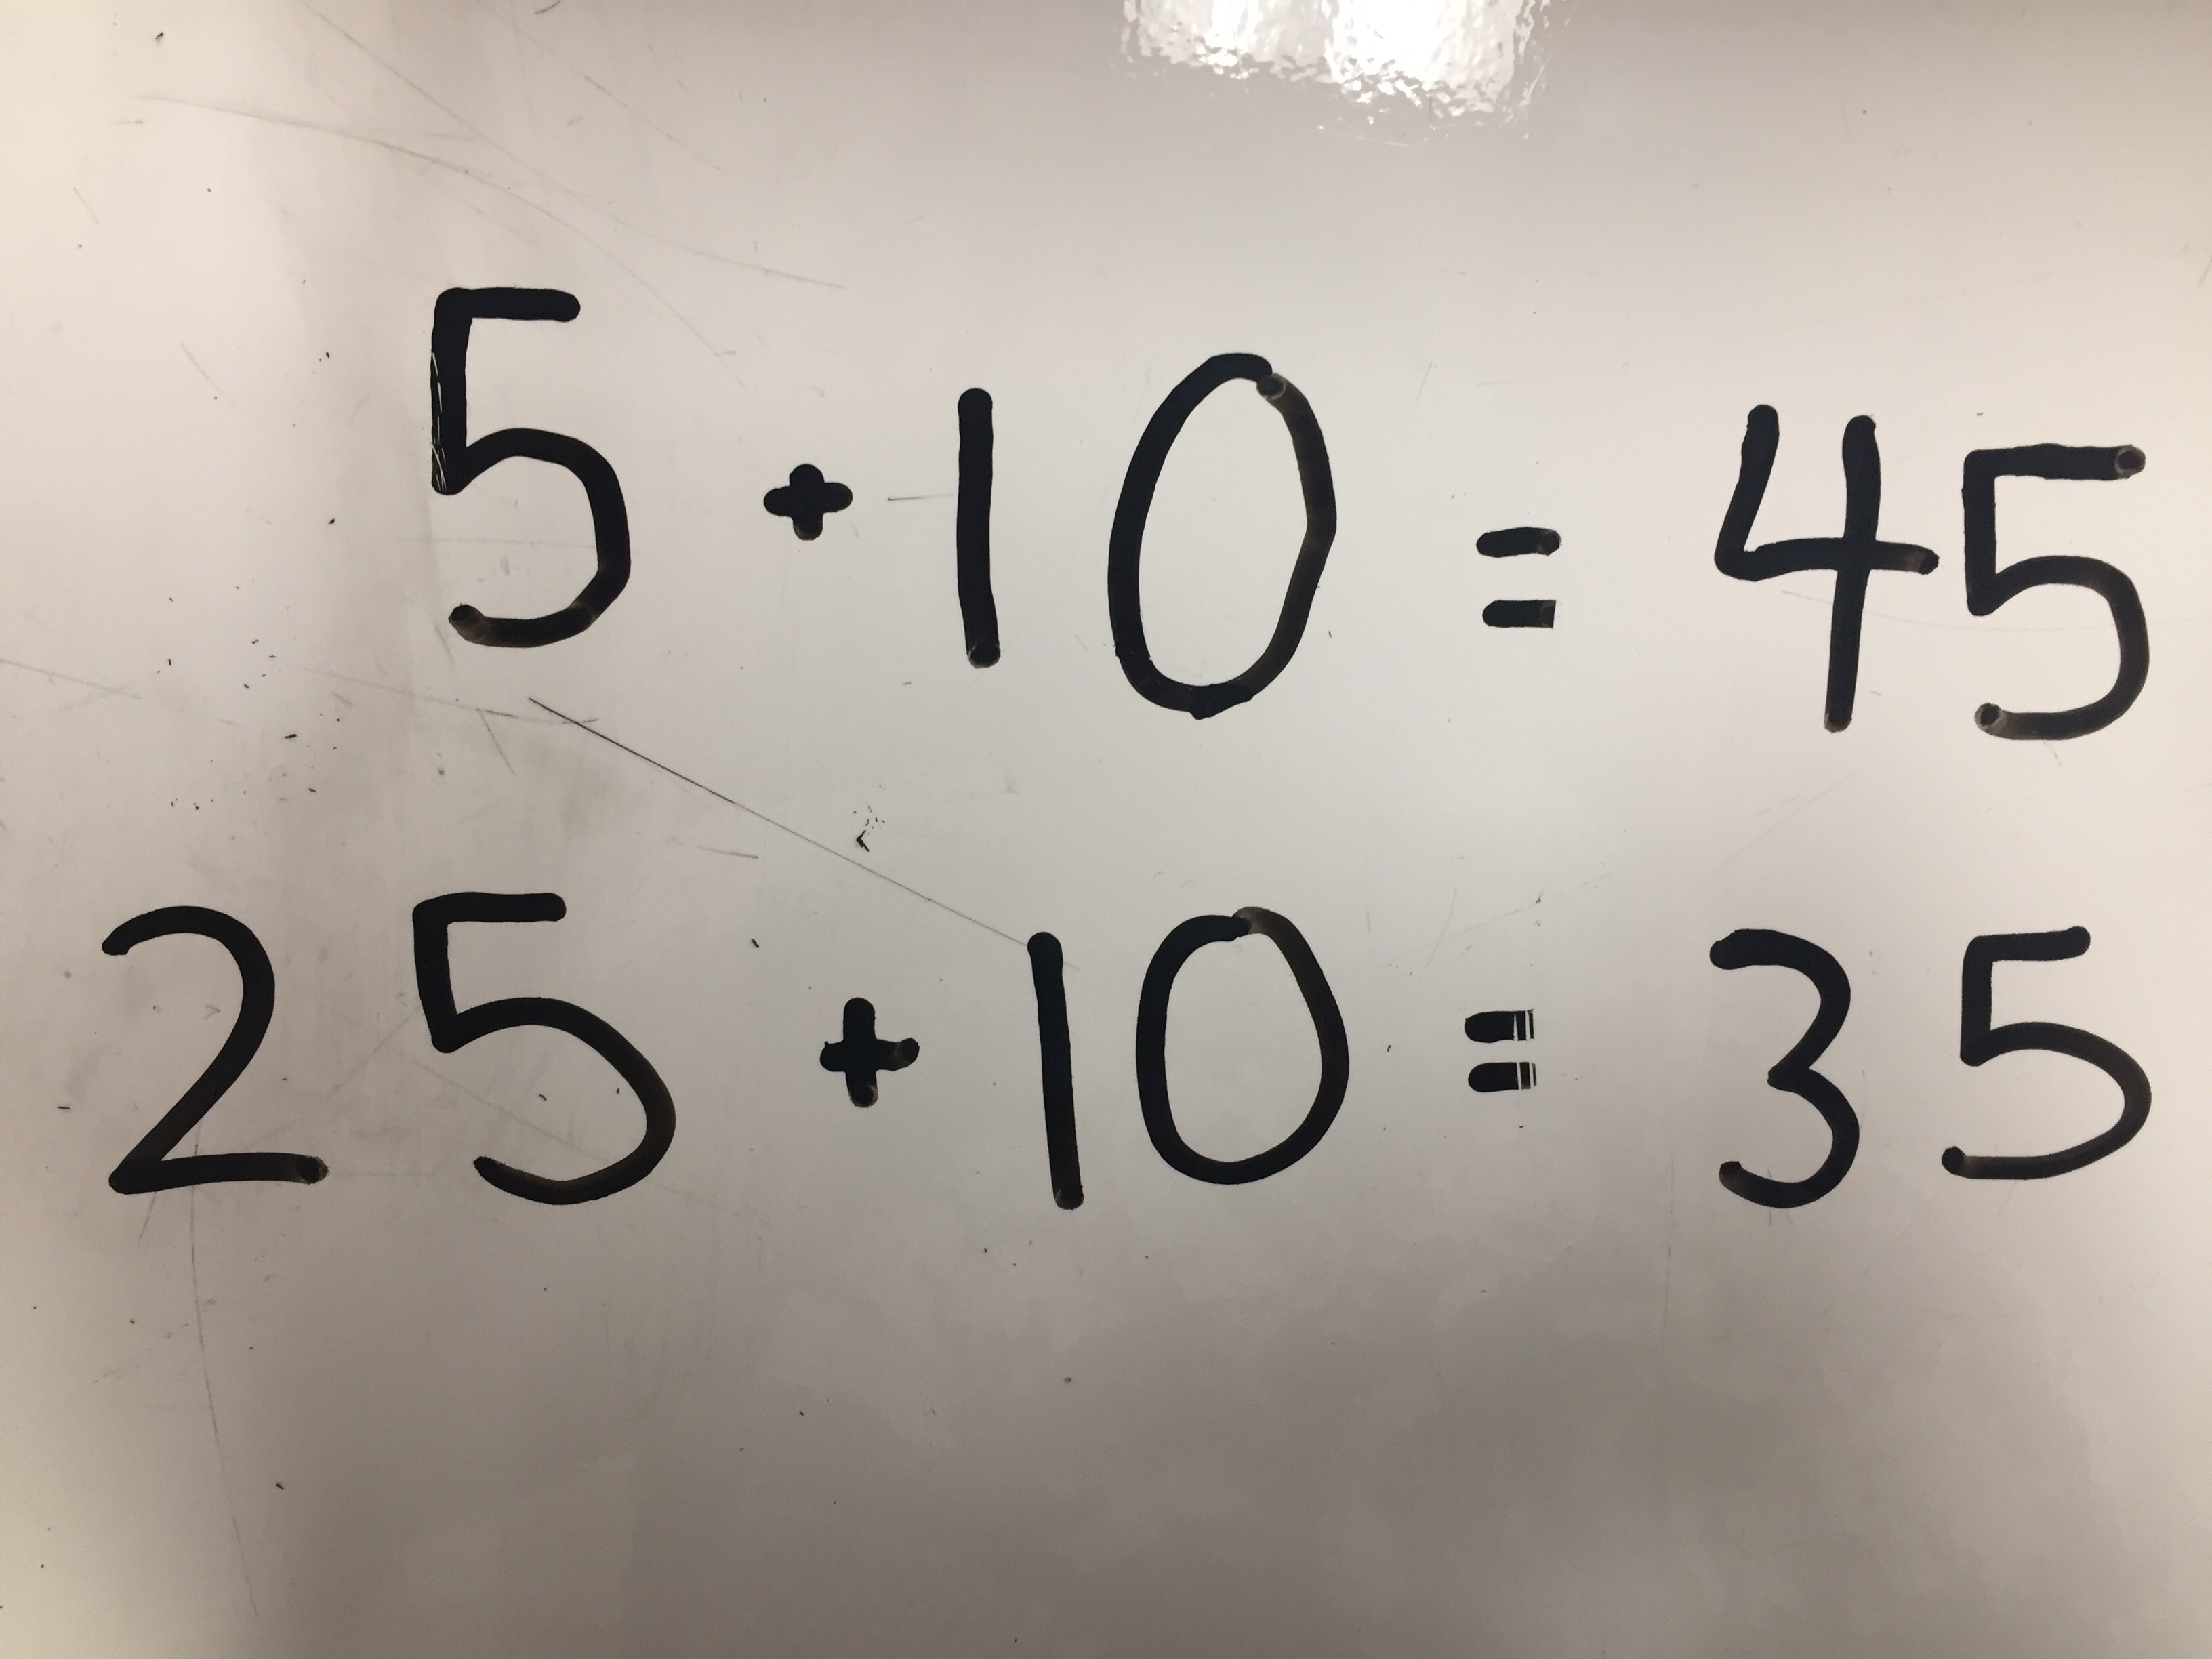 5 + 10 = 45
25 + 10 = 35